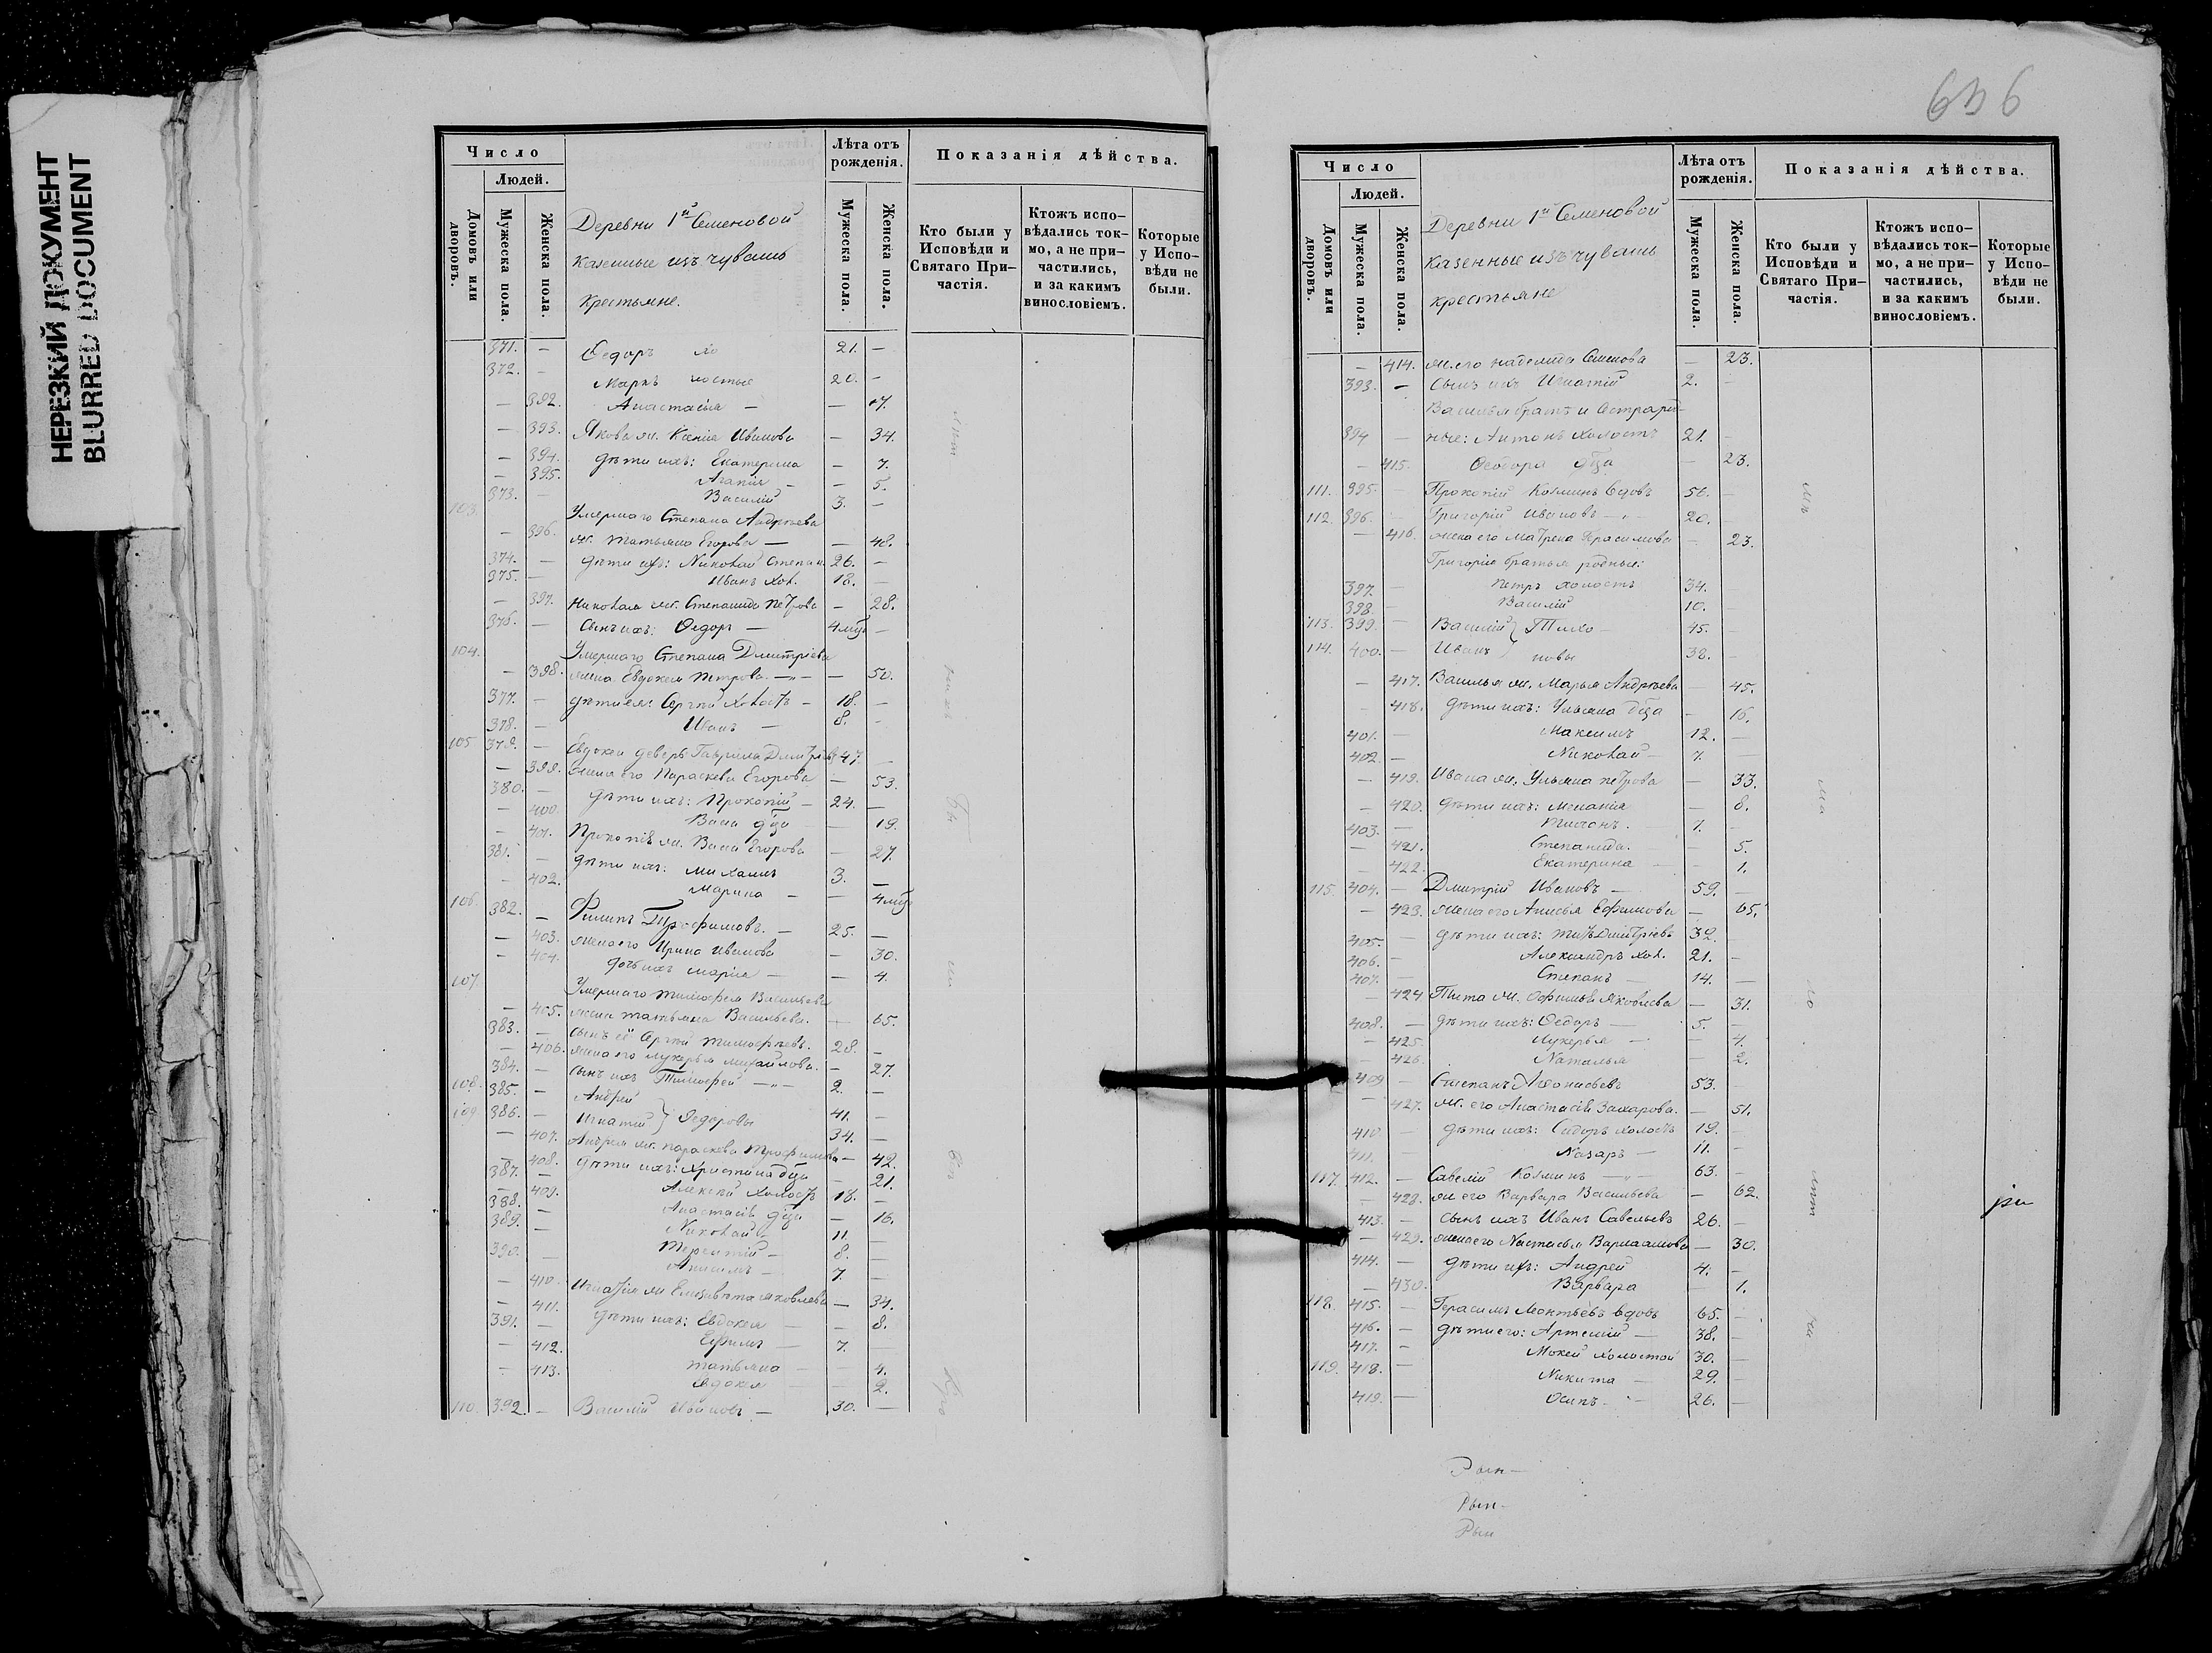 НЕРЕЗКИЙ ДОКУМЕНТ
BLURRED DOCUMENT
Число
Людей.
Домовъ или дворовъ.
Мужеска пола.
Женска пола.
Деревни 1й Семеновой
казенные изъ чувашъ
крестьяне.
Лѣта отъ рожденія.
Мужеска пола.
Женска пола.
Показанія дѣйства.
Кто были у Исповѣди и Святаго При-частія.
Ктожъ испо-вѣдались ток-мо, а не при-частились, и за какимъ винословіемъ.
Которые у Испо-вѣди не были.
371. — Ѳедоръ хо 21. —
372. — Маркъ лостые 20. —
— 392. Анастасія — — 17.
— 393. Якова ж. Ксенія Иванова — 34.
— 394. дѣти ихъ: Екатерина — 7.
— 395. Агапія — — 5.
373. — Василій 3. —
103. Умершаго Степана Андреева
— 396. ж. Татьяна Егорова — — 48.
374. — дѣти ихъ: Николай Степан. 26. —
375. — Иванъ хол. 18. —
— 397. Николая ж. Степанида Петрова — 28.
376. — Сынъ ихъ: Ѳедоръ — 4 мѣс —
104. Умершаго Степана Дмитріева
— 398. жена Евдокея Петрова — — 50.
377. — дѣти ея: Сергѣй холостъ — 18. —
378. — Иванъ — 8. —
105 378. — Евдокеи деверь Гаврила Дмитріевъ 47. —
— 399. Жена его Параскева Егорова — 53.
380. — дѣти ихъ: Прокопій — 24. —
— 400. Васа дѣва — 19.
— 401. Прокопія ж. Васа Егорова — 27.
381. — дѣти ихъ: Михаилъ 3. —
— 402. Марина — — 4 мѣс
106. 382. — Филипъ Трофимовъ. — 25. —
— 403. Жена его Ирина Иванова — 30.
— 404. дочь ихъ Марія — — 4.
107. Умершаго Тимофея Васильева
— 405. жена Татьяна Васильева. — 65.
383. — сынъ её Сергѣй Тимофѣевъ. 28. —
— 406. Жена его Лукерья Михайлова. — 27.
384. — сынъ ихъ Тимофей — 2. —
108. 385. — Андрей 41. —
109 386. — Игнатій } Ѳедоровы 34. —
— 407. Андрея ж. Параскева Трофимова — 42.
— 408. дѣти ихъ: Христина дѣва — 21.
387. — Алексѣй холостъ 18. —
— 409. Анастасія дѣва — 16.
388. — Николай 11. —
389. — Терентій — 8. —
390. — Анисимъ — 7. —
— 410. Игнатія ж Елизавета Яковлева — 34.
— 411. дѣти ихъ: Евдокея — — 8.
391. — Ефимъ — 7. —
— 412. Татьяна — — 4.
— 413. Евдокея — — 2.
110. 392. — Василій Ивановъ — 30. —
636
Число
Людей.
Домовъ или дворовъ.
Мужеска пола.
Женска пола.
Деревни 1й Семеновой
казенные изъ чувашъ
крестьяне
Лѣта отъ рожденія.
Мужеска пола.
Женска пола.
Показанія дѣйства.
Кто были у Исповѣди и Святаго При-частія.
Ктожъ испо-вѣдались ток-мо, а не при-частились, и за какимъ винословіемъ.
Которые у Испо-вѣди не были.
— 414. ж. его Надежда Семенова — 23.
393. — Сынъ ихъ Игнатій 2. —
Василья братъ и сестра род-
394 — ные: Антонъ холостъ 21. —
— 415. Ѳеодора дѣва — 23.
111. 395. — Прокопій Козминъ вдовъ 56. —
112. 396. — Григорій Ивановъ — 20. —
— 416. жена его Матрена Герасимова — 23.
Григорія братья родные:
397. — Петръ холостъ 34. —
398. — Василій 10. —
113. 399. — Василій } Тихо- 45. —
114. 400. — Иванъ } новы 38. —
— 417. Василья ж. Марья Андреева — 45.
— 418. дѣти ихъ: Ульяна дѣва — 16.
401. — Максимъ 12. —
402. — Николай — 7. —
— 419. Ивана ж. Ульяна Петрова — 33.
— 420. дѣти ихъ: Меланія — 8.
403. — 7. —
— 421. Степанида. — 5.
— 422. Екатерина — — 1.
115. 404. — Дмитрій Ивановъ — 59. —
— 423. жена его Анисья Ефимова — 65.
405. — дѣти ихъ: Титъ Дмитріевъ 32. —
406. — Александръ хол. 21. —
407. — Степанъ — 14. —
— 424 Тита ж. Яковлева — 31.
408. — дѣти ихъ: Ѳедоръ — 5. —
— 425. Лукерья — — 4.
— 426. Наталья — 2.
409 — Степанъ 53. —
— 427. ж. его Анастасія Захарова. — 51.
410 — дѣти ихъ: Сидоръ холостъ 19. —
411. — Назаръ — 11. —
117. 412. — Савелій Козминъ — 63. —
— 428. ж его Варвара Васильева — 62.
413. — сынъ ихъ Иванъ Савельевъ 26. —
— 429. жена его Настасья Варлаамова — 30.
414. — дѣти ихъ: Андрей 4. —
— 430. Варвара — 1.
118. 415. — Герасимъ Леонтьевъ вдовъ 65. —
416. — дѣти его: Артемій — 38. —
417. — Мокей холостой 30. —
119. 418. — Никита — 29. —
419. — Осипъ — 26. —